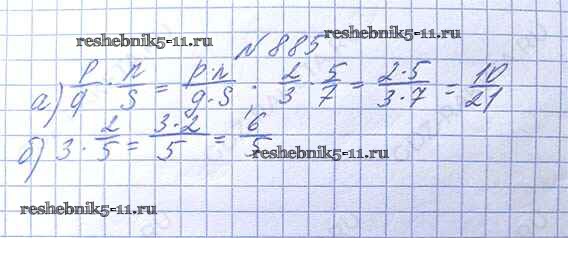 reshebnik5-11.ru
№885
а) p/q · n/s = p·n/q·s; 2/3 · 5/7 = 2·5/3·7 = 10/21
б) 3 · 2/5 = 3·2/5 = 6/5
reshebnik5-11.ru
reshebnik5-11.ru